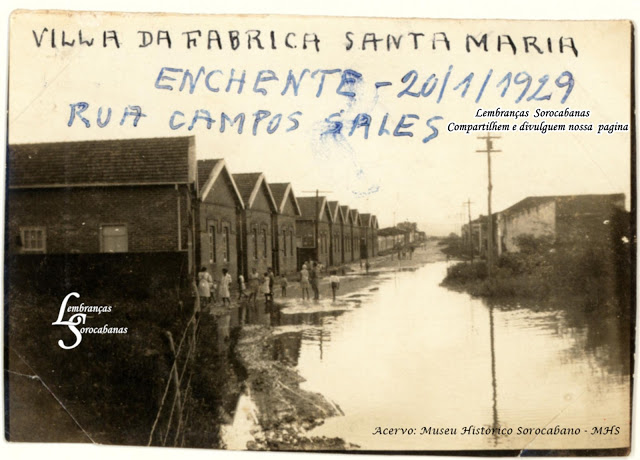 VILLA DA FABRICA SANTA MARIA
ENCHENTE - 20/1/1929
RUA CAMPOS SALES
Lembranças Sorocabanas
Compartilhem e divulguem nossa pagina
Lembranças
Sorocabanas
Acervo: Museu Histórico Sorocabano - MHS